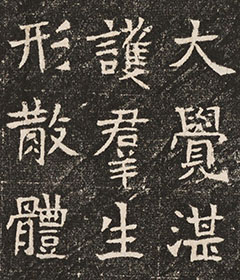 大覺湛
護羣生
形散體